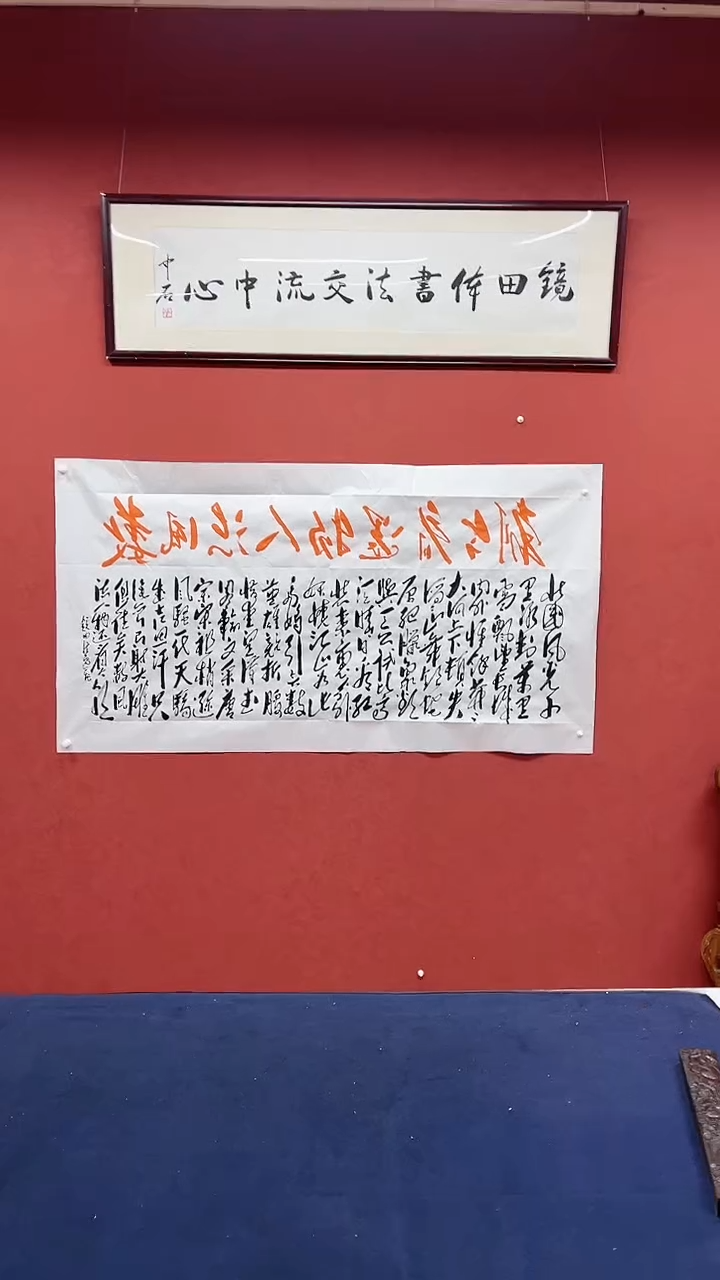 鏡田体書法交流中心
中石
數風流人物還看今朝
北國風光千
里冰封萬里
雪飄望長城
內外惟餘莽莽
大河上下頓失
滔滔山舞銀蛇
原馳蠟象欲
與天公試比高
須晴日看紅
裝素裹分外
妖嬈江山如此
多嬌引無數
英雄競折腰
惜秦皇漢武
略輸文采唐
宗宋祖稍遜
風騷一代天驕
成吉思汗只
識彎弓射大雕
俱往矣數風
流人物還看今朝